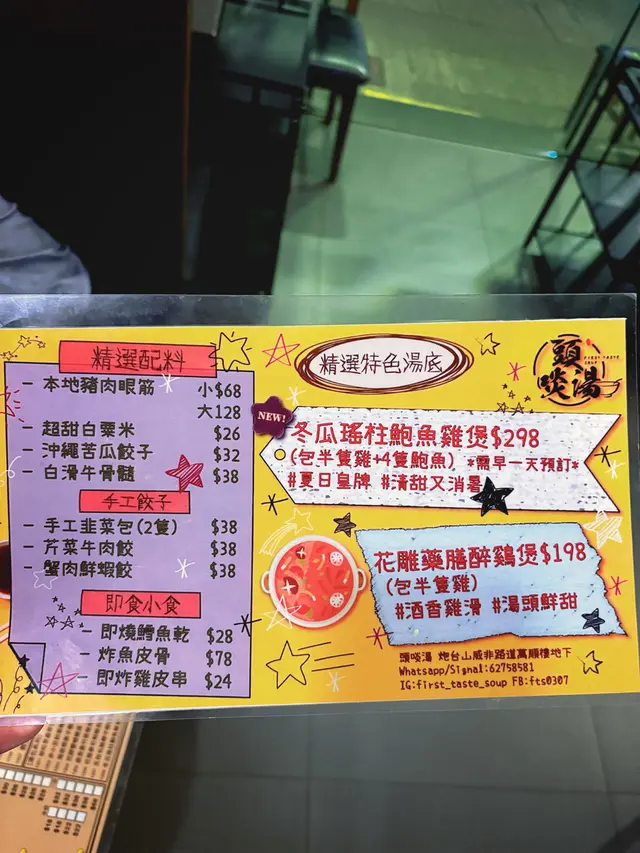 精選配料
- 本地豬肉眼筋 小$68
大128
- 超甜白粟米 $26
- 沖繩苦瓜餃子 $32
- 白滑牛骨髓 $38
手工餃子
- 手工韭菜包(2隻) $38
- 芹菜牛肉餃 $38
- 蟹肉鮮蝦餃 $38
即食小食
- 即燒鱈魚乾 $28
- 炸魚皮骨 $78
- 即炸雞皮串 $24
精選特色湯底
頭啖湯
FIRST TASTE
SOUP
NEW!
冬瓜瑤柱鮑魚雞煲$298
(包半隻雞+4隻鮑魚) *需早一天預訂*
#夏日皇牌 #清甜又消暑
花雕藥膳醉鷄煲$198
(包半隻雞)
#酒香雞滑 #湯頭鮮甜
頭啖湯 炮台山威非路道萬順樓地下
Whatsapp/Signal:62758581
IG:first_taste_soup FB:fts0307